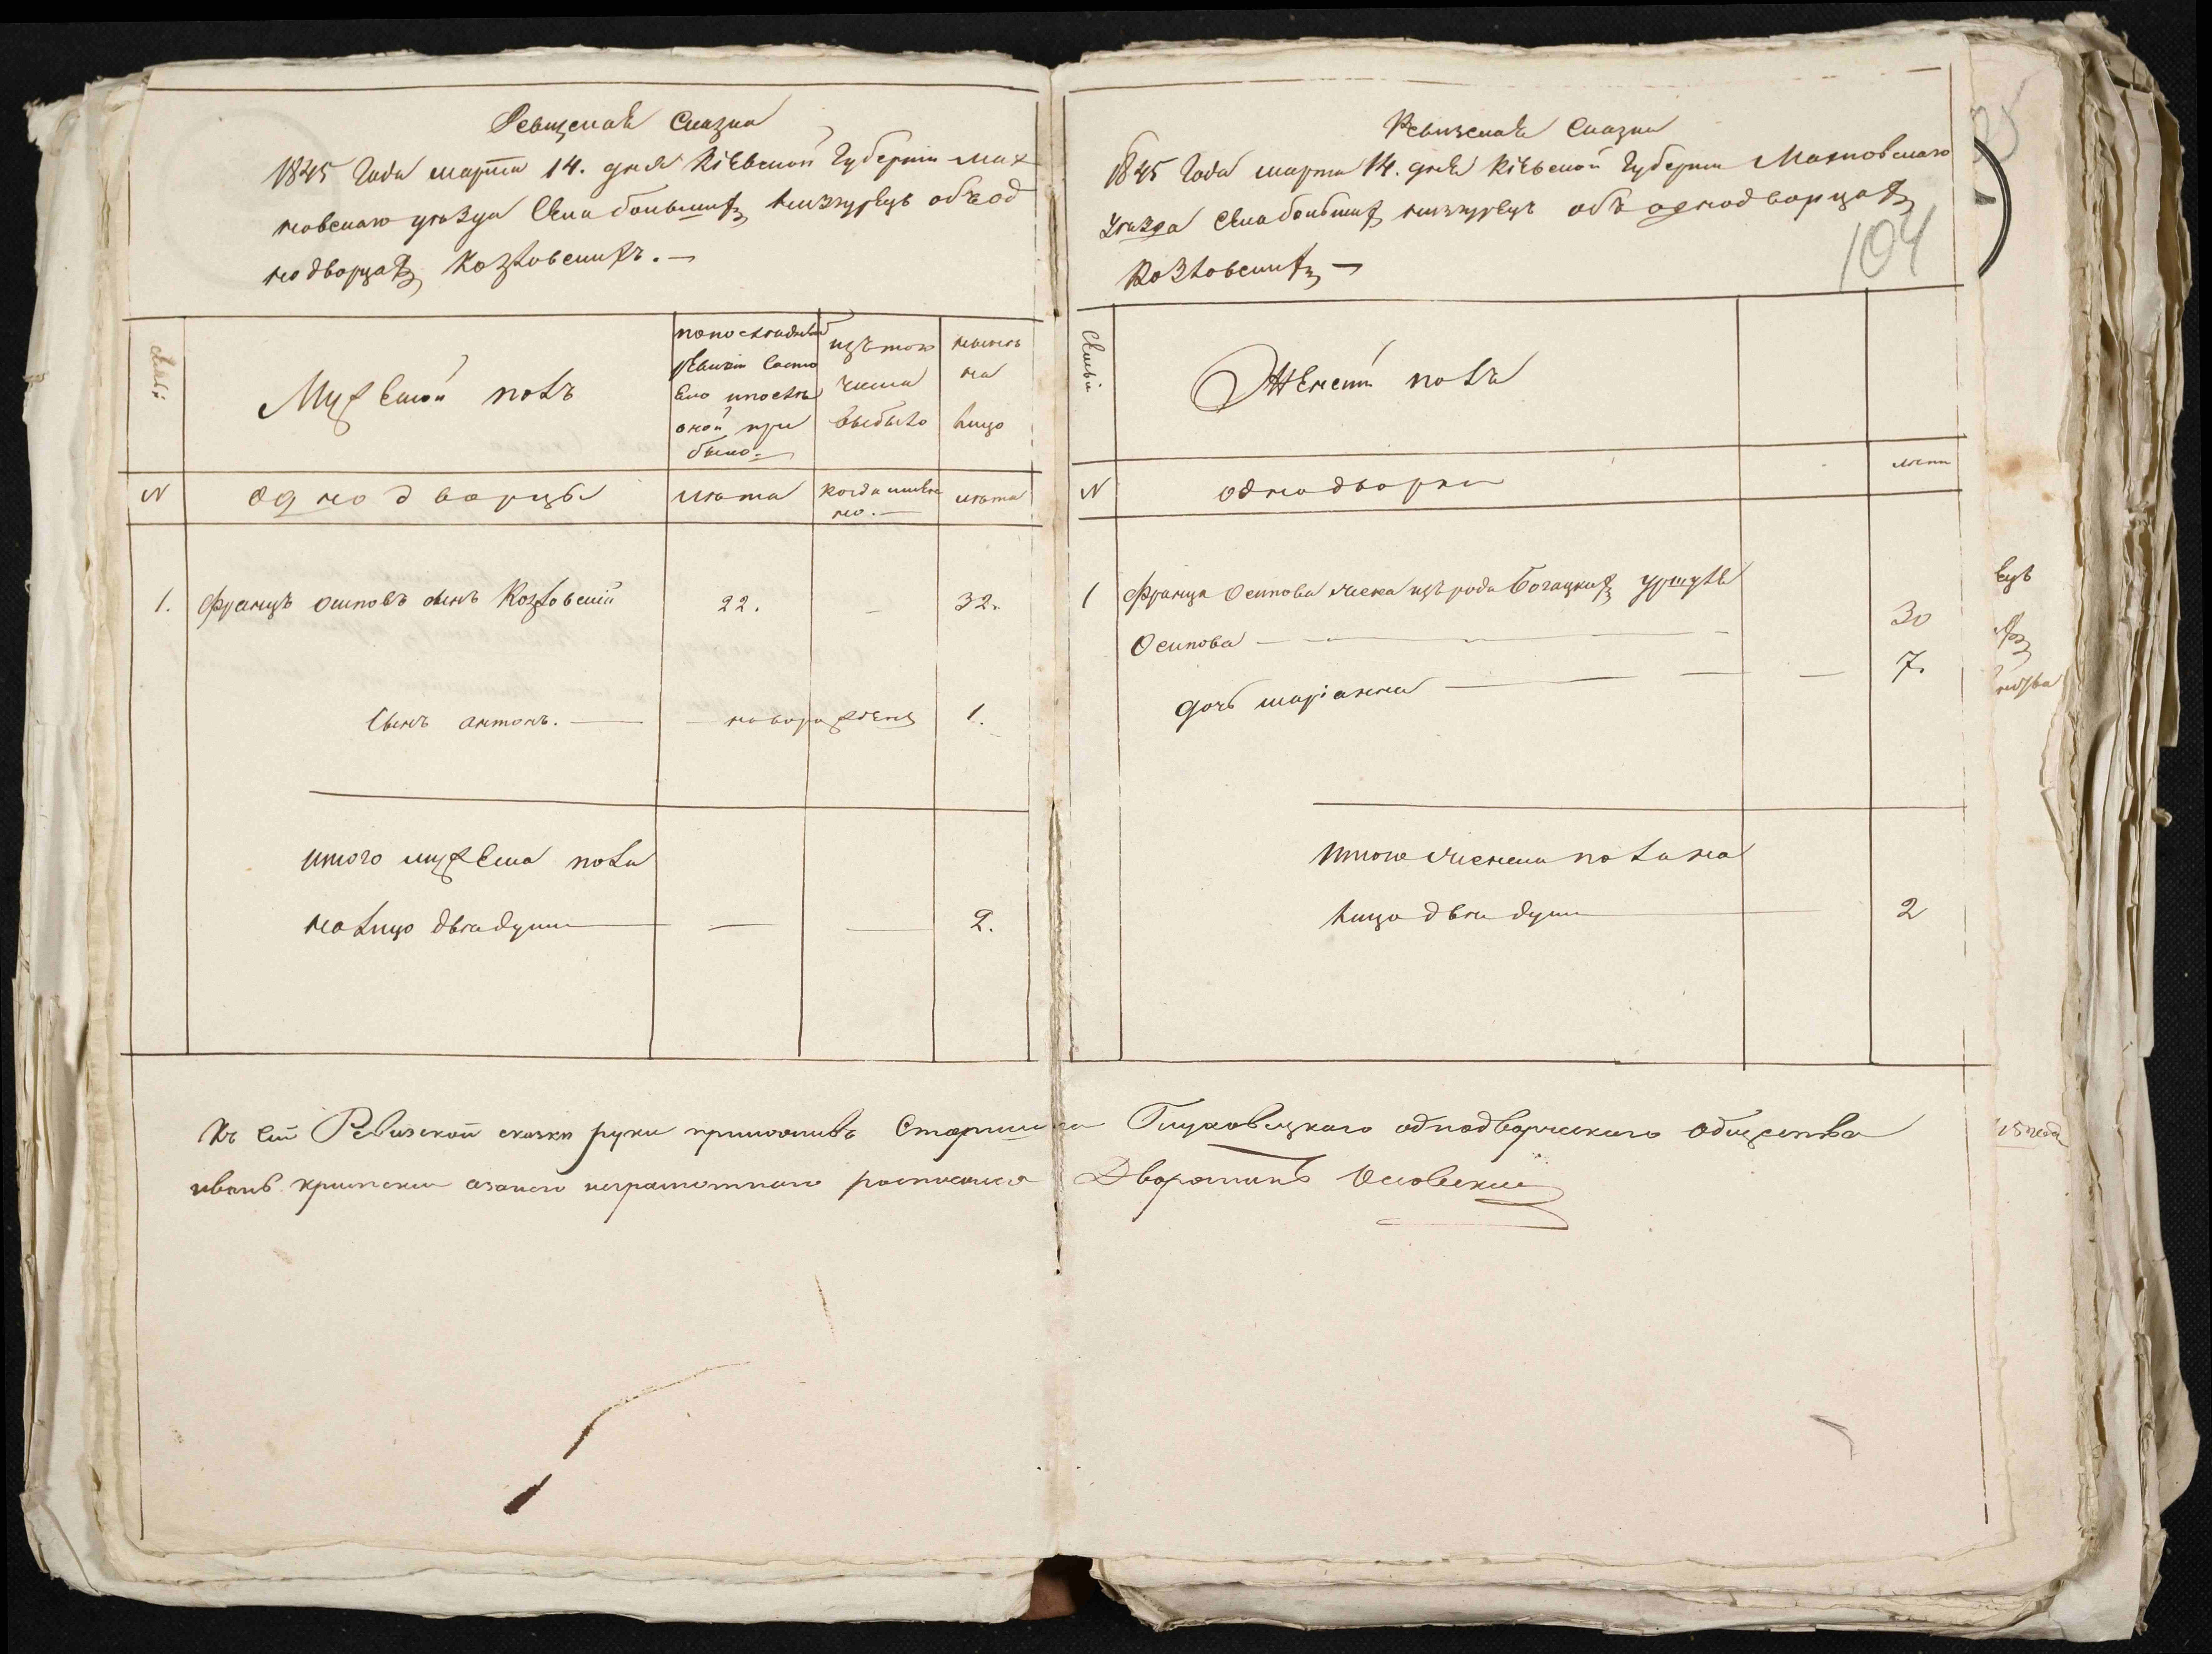 Ревизская Сказка
1845 Года марта 14. дня Кіевской Губерніи Мах
новскаго уѣзда Села большихъ низгурецъ объ од
нодворцахъ Козловскихъ. —
Семьи
Мужеской полъ
по последней
ревизіи состо
яло и после
оной при
было
изъ того
числа
выбыло
нынѣ
на
лицо
N
однодворцы
лѣта
когда имен
но. —
лѣта
1. Францъ осиповъ сынъ Козловскій 22. — 32.
Сынъ антонъ. — новорожденъ 1.
итого мужеска пола
налицо двѣ души — — — 2.
Ревизская Сказка
1845 Года марта 14. дня Кіевской Губерніи Махновскаго
уѣзда Села большихъ низгурецъ объ однодворцахъ
Козловскихъ —
104
Семьи
Женскій полъ
N
однодворки
лѣта
1 Франца Осипова жена изъ рода Богацкихъ Уршуля
Осипова — 30
дочь маріанна — 7.
Итого женска пола на
лицо двѣ души 2
Къ сей Ревизской сказки руки приложивъ Старшина Глуховецкаго однодворческаго общества
иванъ а за него неграмотнаго росписался Дворянинъ
ецъ